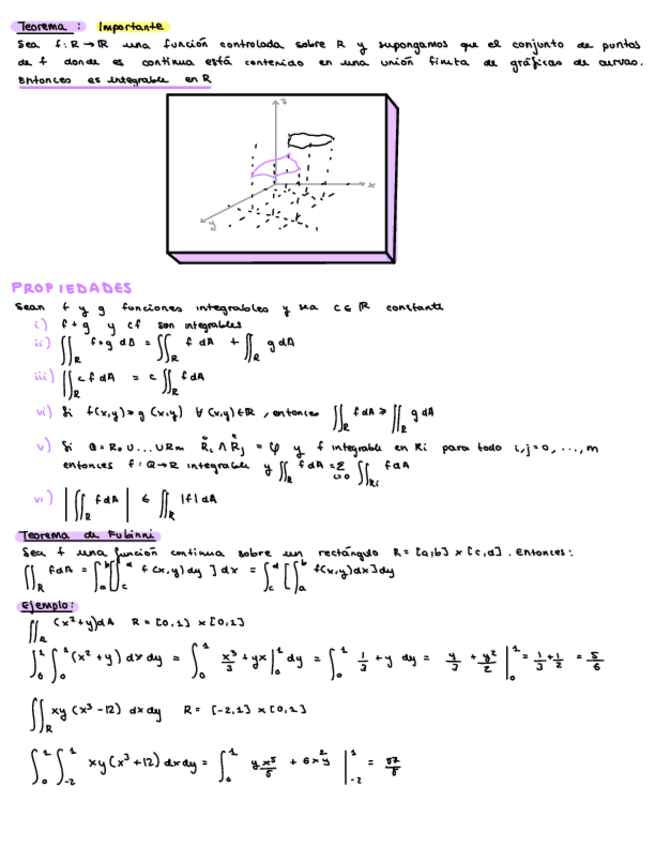 Teorema : Importante
Sea f: R → R una función controlada sobre R y supongamos que el conjunto de puntos
de f donde es continua está contenido en una unión finita de gráficas de curvas.
Entonces es integrable en R
z
x
y
PROPIEDADES
Sean f y g funciones integrables y sea c ∈ R constante
i) f+g y cf son integrables
ii) ∬_R f+g dA = ∬_R f dA + ∬_R g dA
iii) ∬_R c f dA = c ∬_R f dA
vi) Si f(x,y) > g(x,y) ∀ (x,y) ∈ R, entonces ∬_R f dA > ∬_R g dA
v) Si Q = R₀ ∪ ... ∪ Rm R̊i ∧ R̊j = φ y f integrable en Ri para todo i,j=0, ..., m
entonces f: Q→R integrable y ∬_R f dA = Σ_{i=0} ∬_{Ri} f dA
vi) |∬_R f dA| ≤ ∬_R |f| dA
Teorema de Fubinni
Sea f una función continua sobre un rectángulo R = [a,b] x [c,d]. Entonces:
∬_R f dA = ∫_a^b [∫_c^d f(x,y) dy ] dx = ∫_c^d [∫_a^b f(x,y) dx ] dy
Ejemplo:
∬_R (x²+y) dA R = [0,1] x [0,1]
∫_0^1 ∫_0^1 (x² + y) dx dy = ∫_0^1 x³/3 + yx |_0^1 dy = ∫_0^1 1/3 + y dy = y/3 + y²/2 |_0^1 = 1/3 + 1/2 = 5/6
∬_R xy (x³ -12) dx dy R = [-2,1] x [0,1]
∫_0^1 ∫_{-2}^1 xy (x³ +12) dx dy = ∫_0^1 y x⁵/5 + 6x²y |_{-2}^1 =